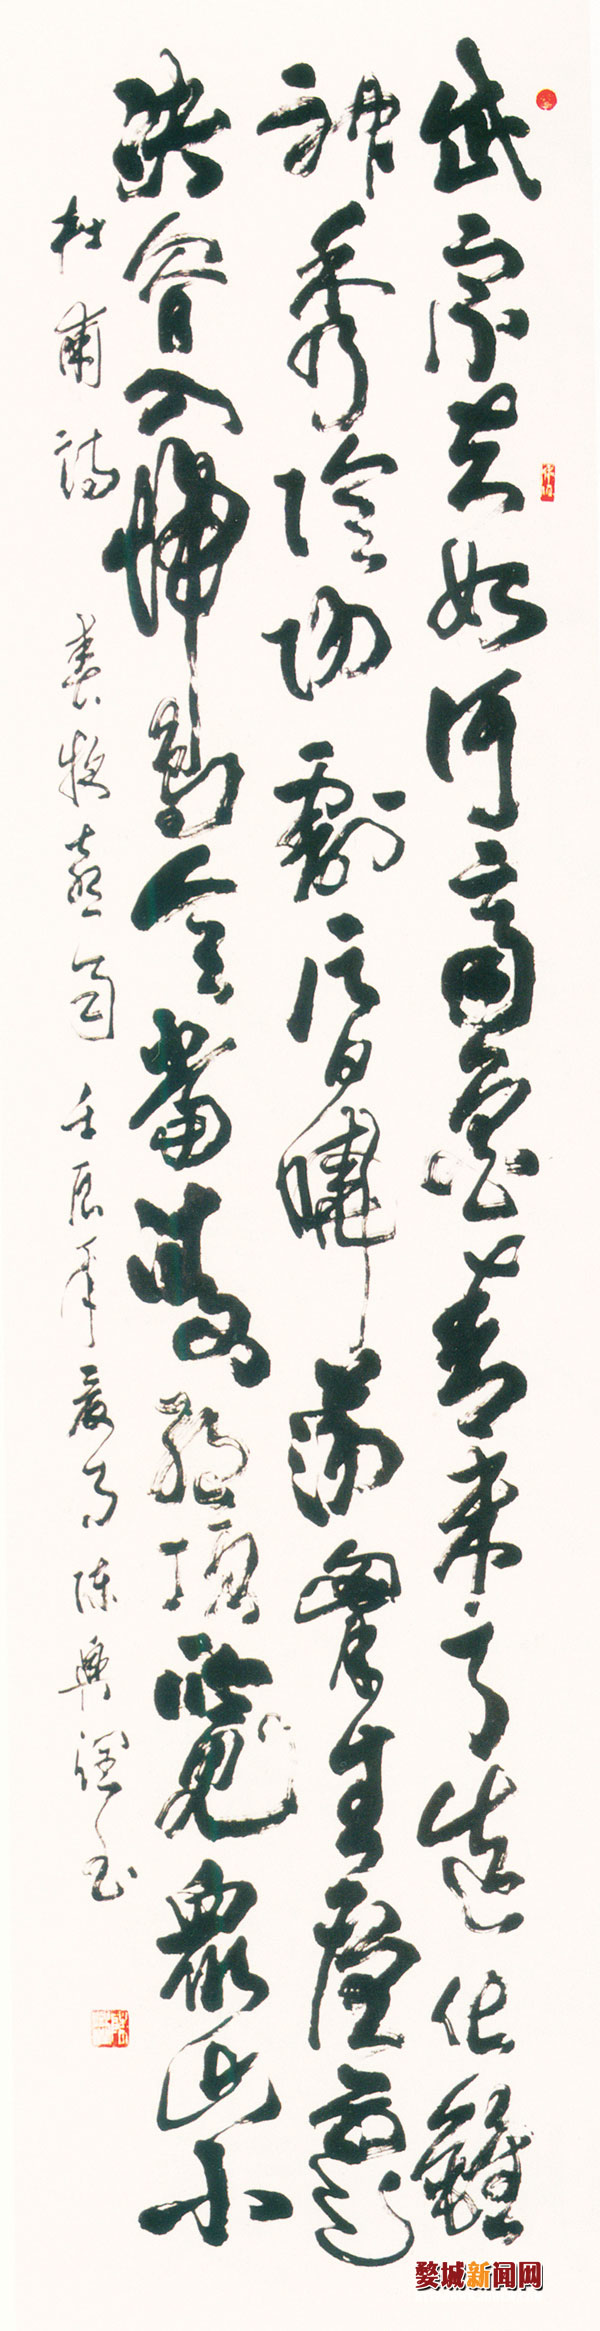 岱宗夫如何齊魯青未了造化鍾
神秀陰陽割昏曉蕩胸生層雲
決眥入歸鳥會當凌絕頂一覽衆山小
杜甫詩 壬辰年夏月陳興书
婺城新闻网